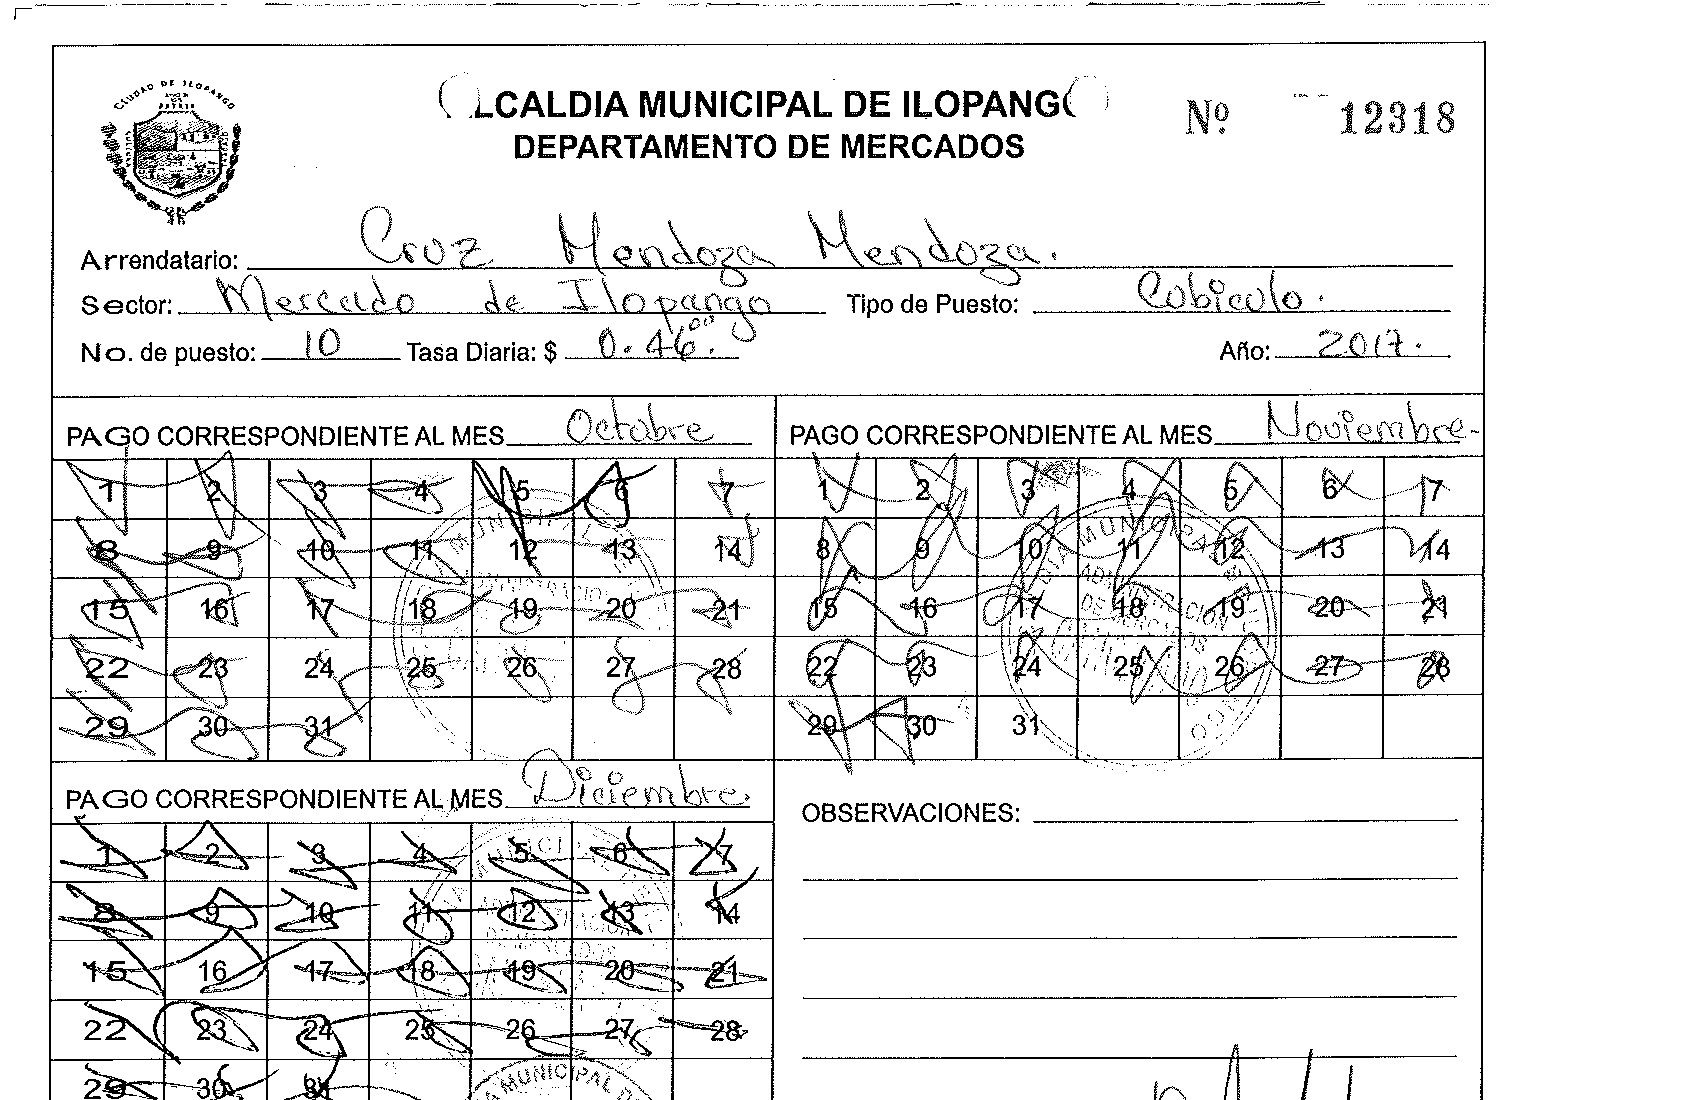 CIUDAD DE ILOPANGO
LCALDIA MUNICIPAL DE ILOPANGO
Nº 12318
DEPARTAMENTO DE MERCADOS
Arrendatario: Cruz Mendoza Mendoza.
Sector: Mercado de Ilopango Tipo de Puesto: Cobiculo.
No. de puesto: 10 Tasa Diaria: $ 0.46. Año: 2017.
PAGO CORRESPONDIENTE AL MES Octubre
1 2 3 4 5 6 7
8 9 10 11 12 13 14
15 16 17 18 19 20 21
22 23 24 25 26 27 28
29 30 31
PAGO CORRESPONDIENTE AL MES Noviembre.
1 2 3 4 5 6 7
8 9 10 11 12 13 14
15 16 17 18 19 20 21
22 23 24 25 26 27 28
29 30 31
PAGO CORRESPONDIENTE AL MES Diciembre.
1 2 3 4 5 6 7
8 9 10 11 12 13 14
15 16 17 18 19 20 21
22 23 24 25 26 27 28
29 30 31
MUNICIPAL D
OBSERVACIONES: